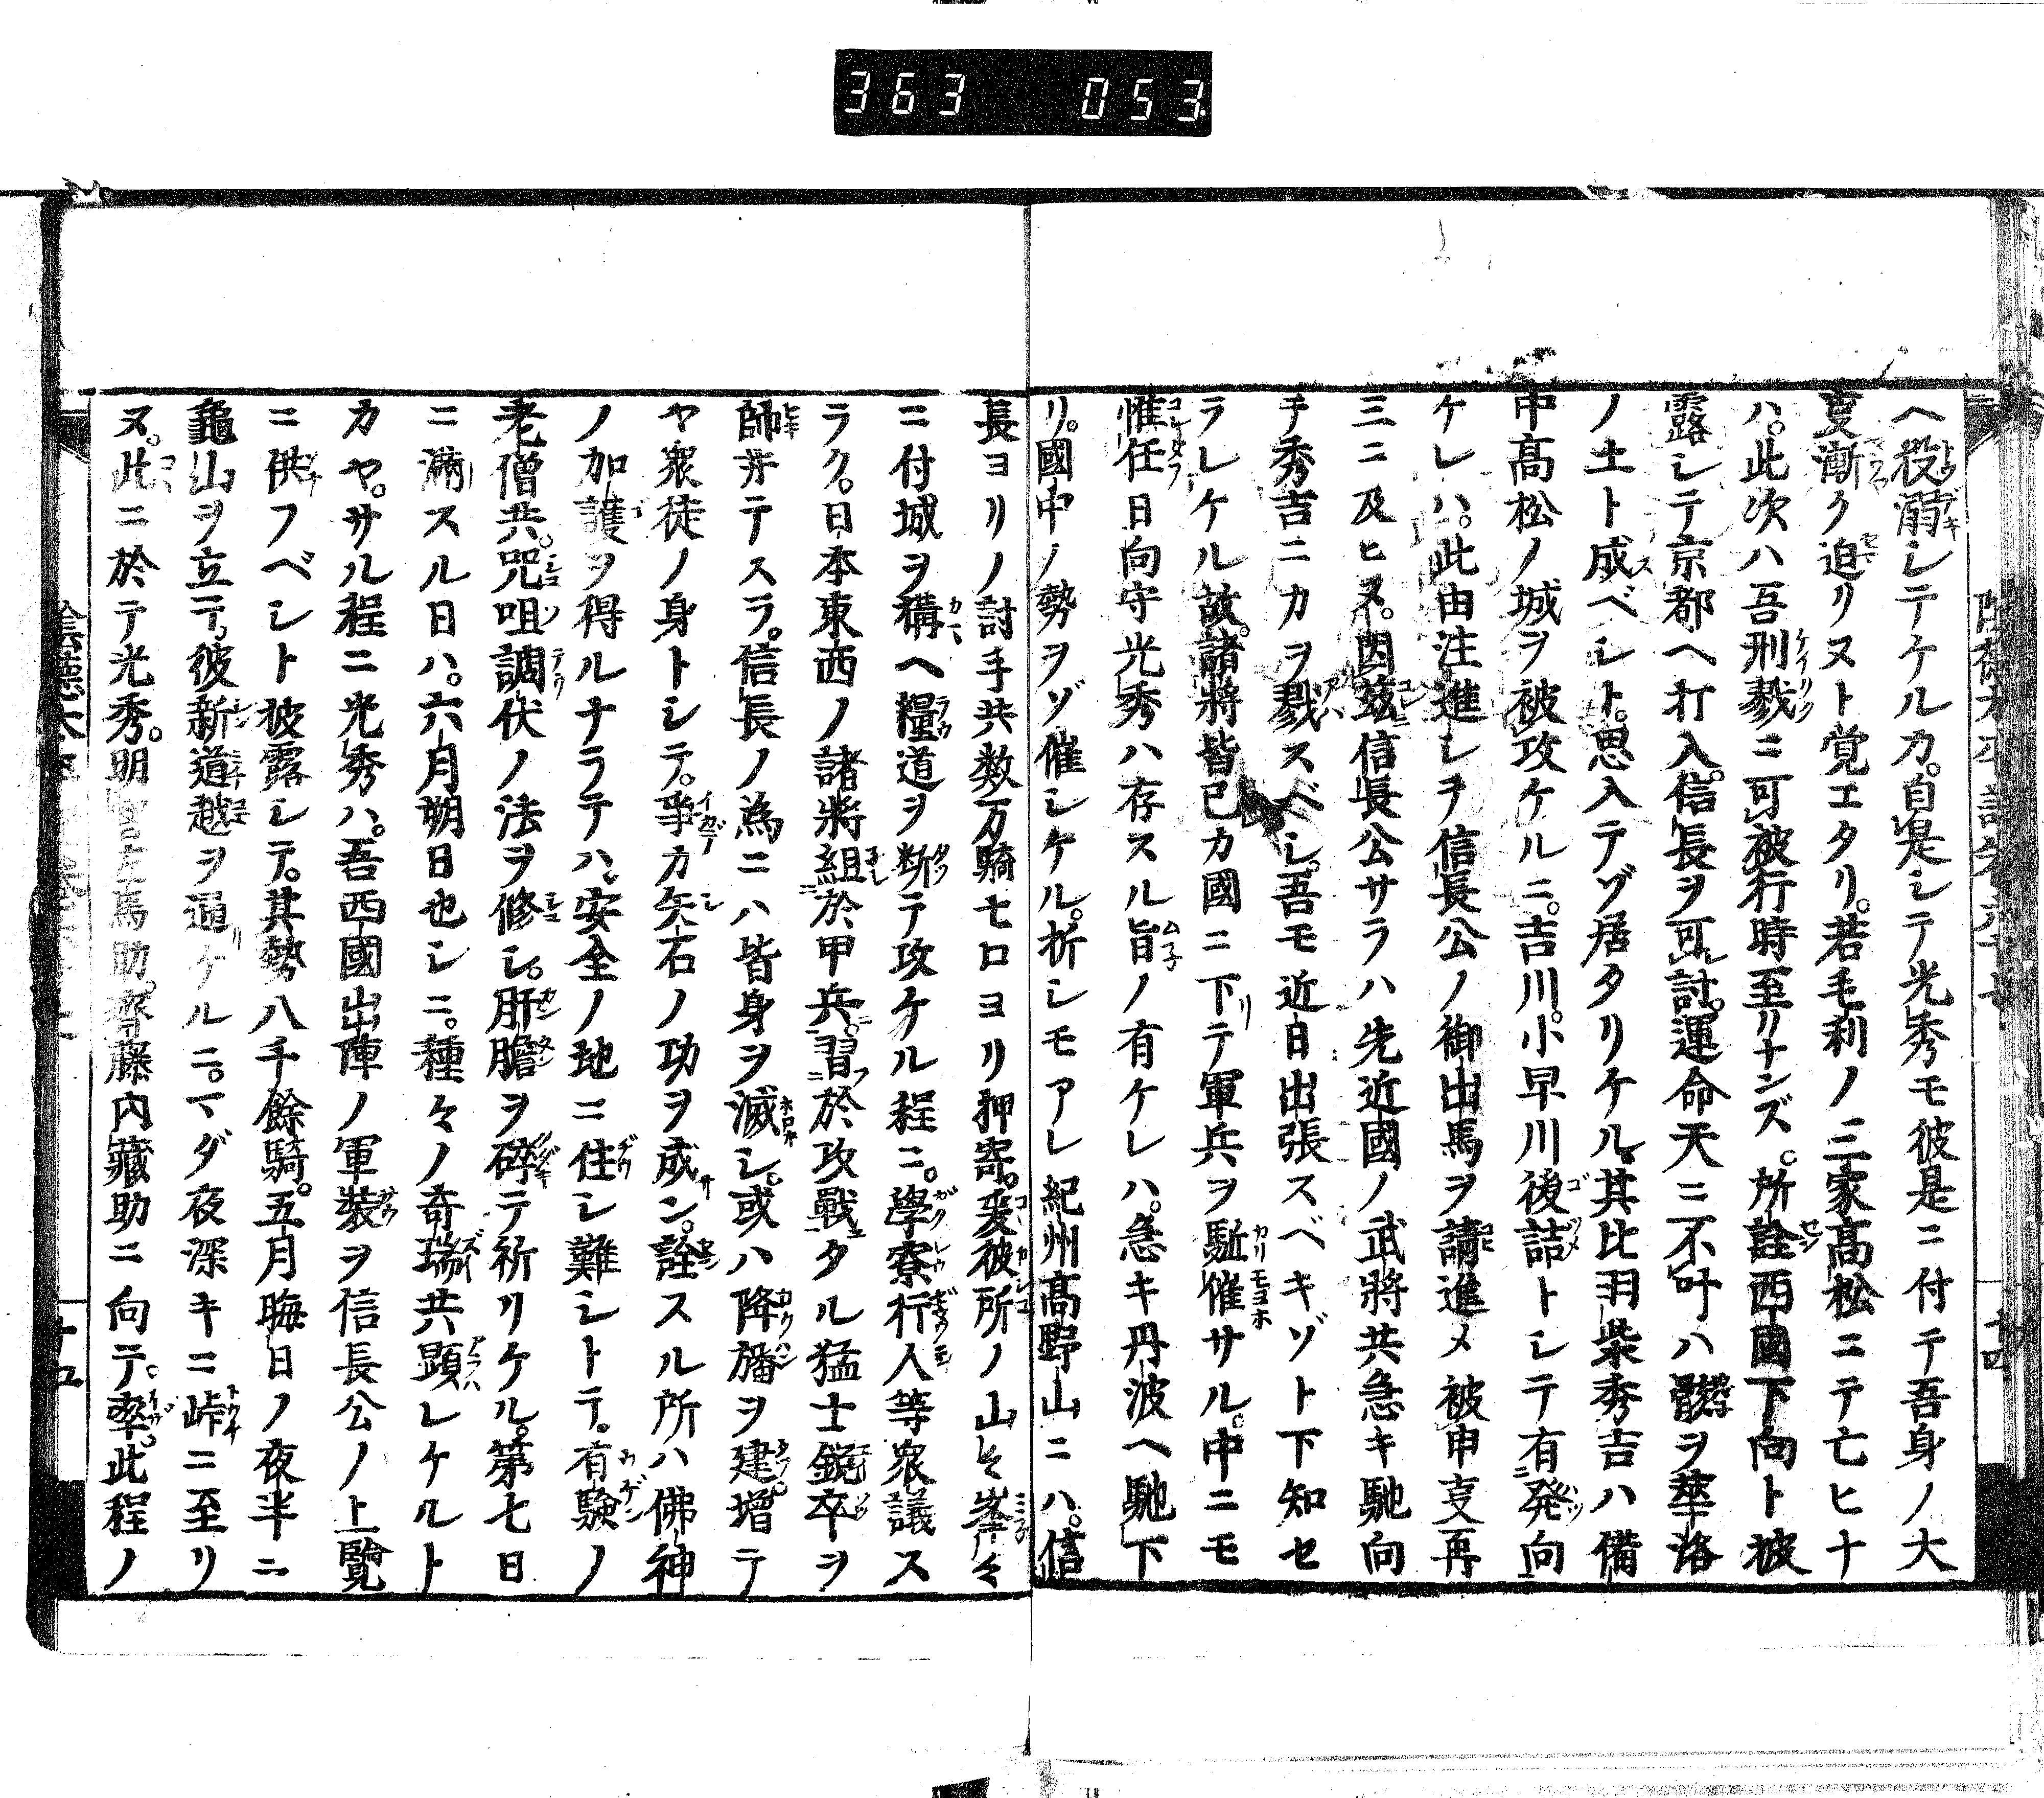 363 053
ヘ投溺シテケルカ。自是シテ光秀モ彼是ニ付テ吾身ノ大
叓漸ク迫リヌト覚エタリ。若毛利ノ三家髙松ニテ亡ヒナ
ハ。此次ハ吾刑戮ニ可被行時至リナンズ。所詮西國下向ト披
露シテ京都ヘ打入。信長ヲ可討。運命天ニ不叶ハ骸ヲ華洛
ノ土ト成ベシト。思入テゾ居タリケル。其比羽柴秀吉ハ備
中髙松ノ城ヲ被攻ケルニ。吉川。小早川後詰トシテ有発向
ケレハ。此由注進シヲ信長公ノ御出馬ヲ請進メ被申叓再
三ニ及ヒヌ。因兹信長公サラハ先近國ノ武將共急キ馳向
テ秀吉ニカヲ戮スベシ。吾モ近日出張スベキゾト下知セ
ラレケル故。諸將皆己カ國ニ下テ軍兵ヲ駈催サル。中ニモ
惟任日向守光秀ハ存スル旨ノ有ケレハ。急キ丹波ヘ馳下
リ。國中ノ勢ヲゾ催シケル。折シモアレ紀州髙野山ニハ。信
長ヨリノ討手共数万騎七口ヨリ押寄。爰彼所ノ山々峯々
ニ付城ヲ構ヘ糧道ヲ断テ攻ケル程ニ。學寮行人等衆議ス
ラク。日本東西ノ諸將組於甲兵。習於攻戰タル猛士鋭卒ヲ
師井テスラ。信長ノ為ニハ皆身ヲ滅シ。或ハ降旛ヲ建。増テ
ヤ衆徒ノ身トシテ。爭カ矢石ノ功ヲ成ン。詮スル所ハ佛神
ノ加護ヲ得ルナラテハ、安全ノ地ニ住シ難シトテ。有験ノ
老僧共。咒咀調伏ノ法ヲ修シ。肝膽ヲ碎テ祈リケル。第七日
ニ滿スル日ハ。六月朔日也シニ。種々ノ奇瑞共顕レケルト
カヤ。サル程ニ光秀ハ。吾西國出陣ノ軍装ヲ信長公ノ上覽
ニ供フベシト披露シテ。其勢八千餘騎。五月晦日ノ夜半ニ
龜山ヲ立テ。彼新道越ヲ通リケルニ。マダ夜深キニ峠ニ至リ
ヌ。此ニ於テ光秀。明智左馬助。齊藤内藏助ニ向テ。率。此程ノ